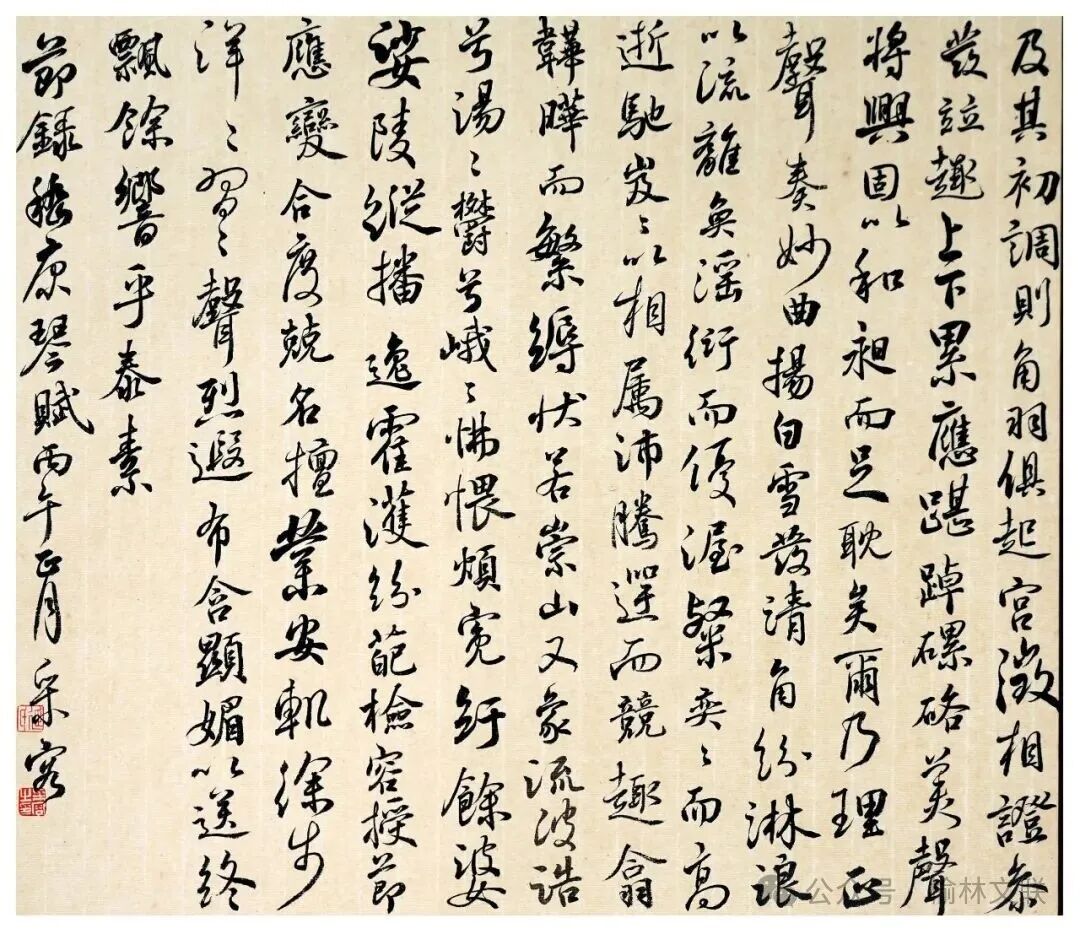 及其初調則角羽俱起宮徵相證參
發竝趣上下累應踸踔磥硌美聲
將興固以和昶而足耽矣爾乃理正
聲奏妙曲揚白雪發清角紛淋浪
以流離奐淫衍而優渥粲奕〻而高
逝馳岌〻以相屬沛騰遌而競趣翕
韡曄而繁縟狀若崇山又象流波浩
兮湯〻鬱兮峨〻怫愲煩冤紆餘婆
娑陵縱播逸霍濩紛葩檢容授節
應變合度兢名擅業安軌徐步
洋〻習〻聲烈遐布含顯媚以送終
飄餘響乎泰素
節錄嵇康琴賦丙午正月采容
公众号·榆林文联